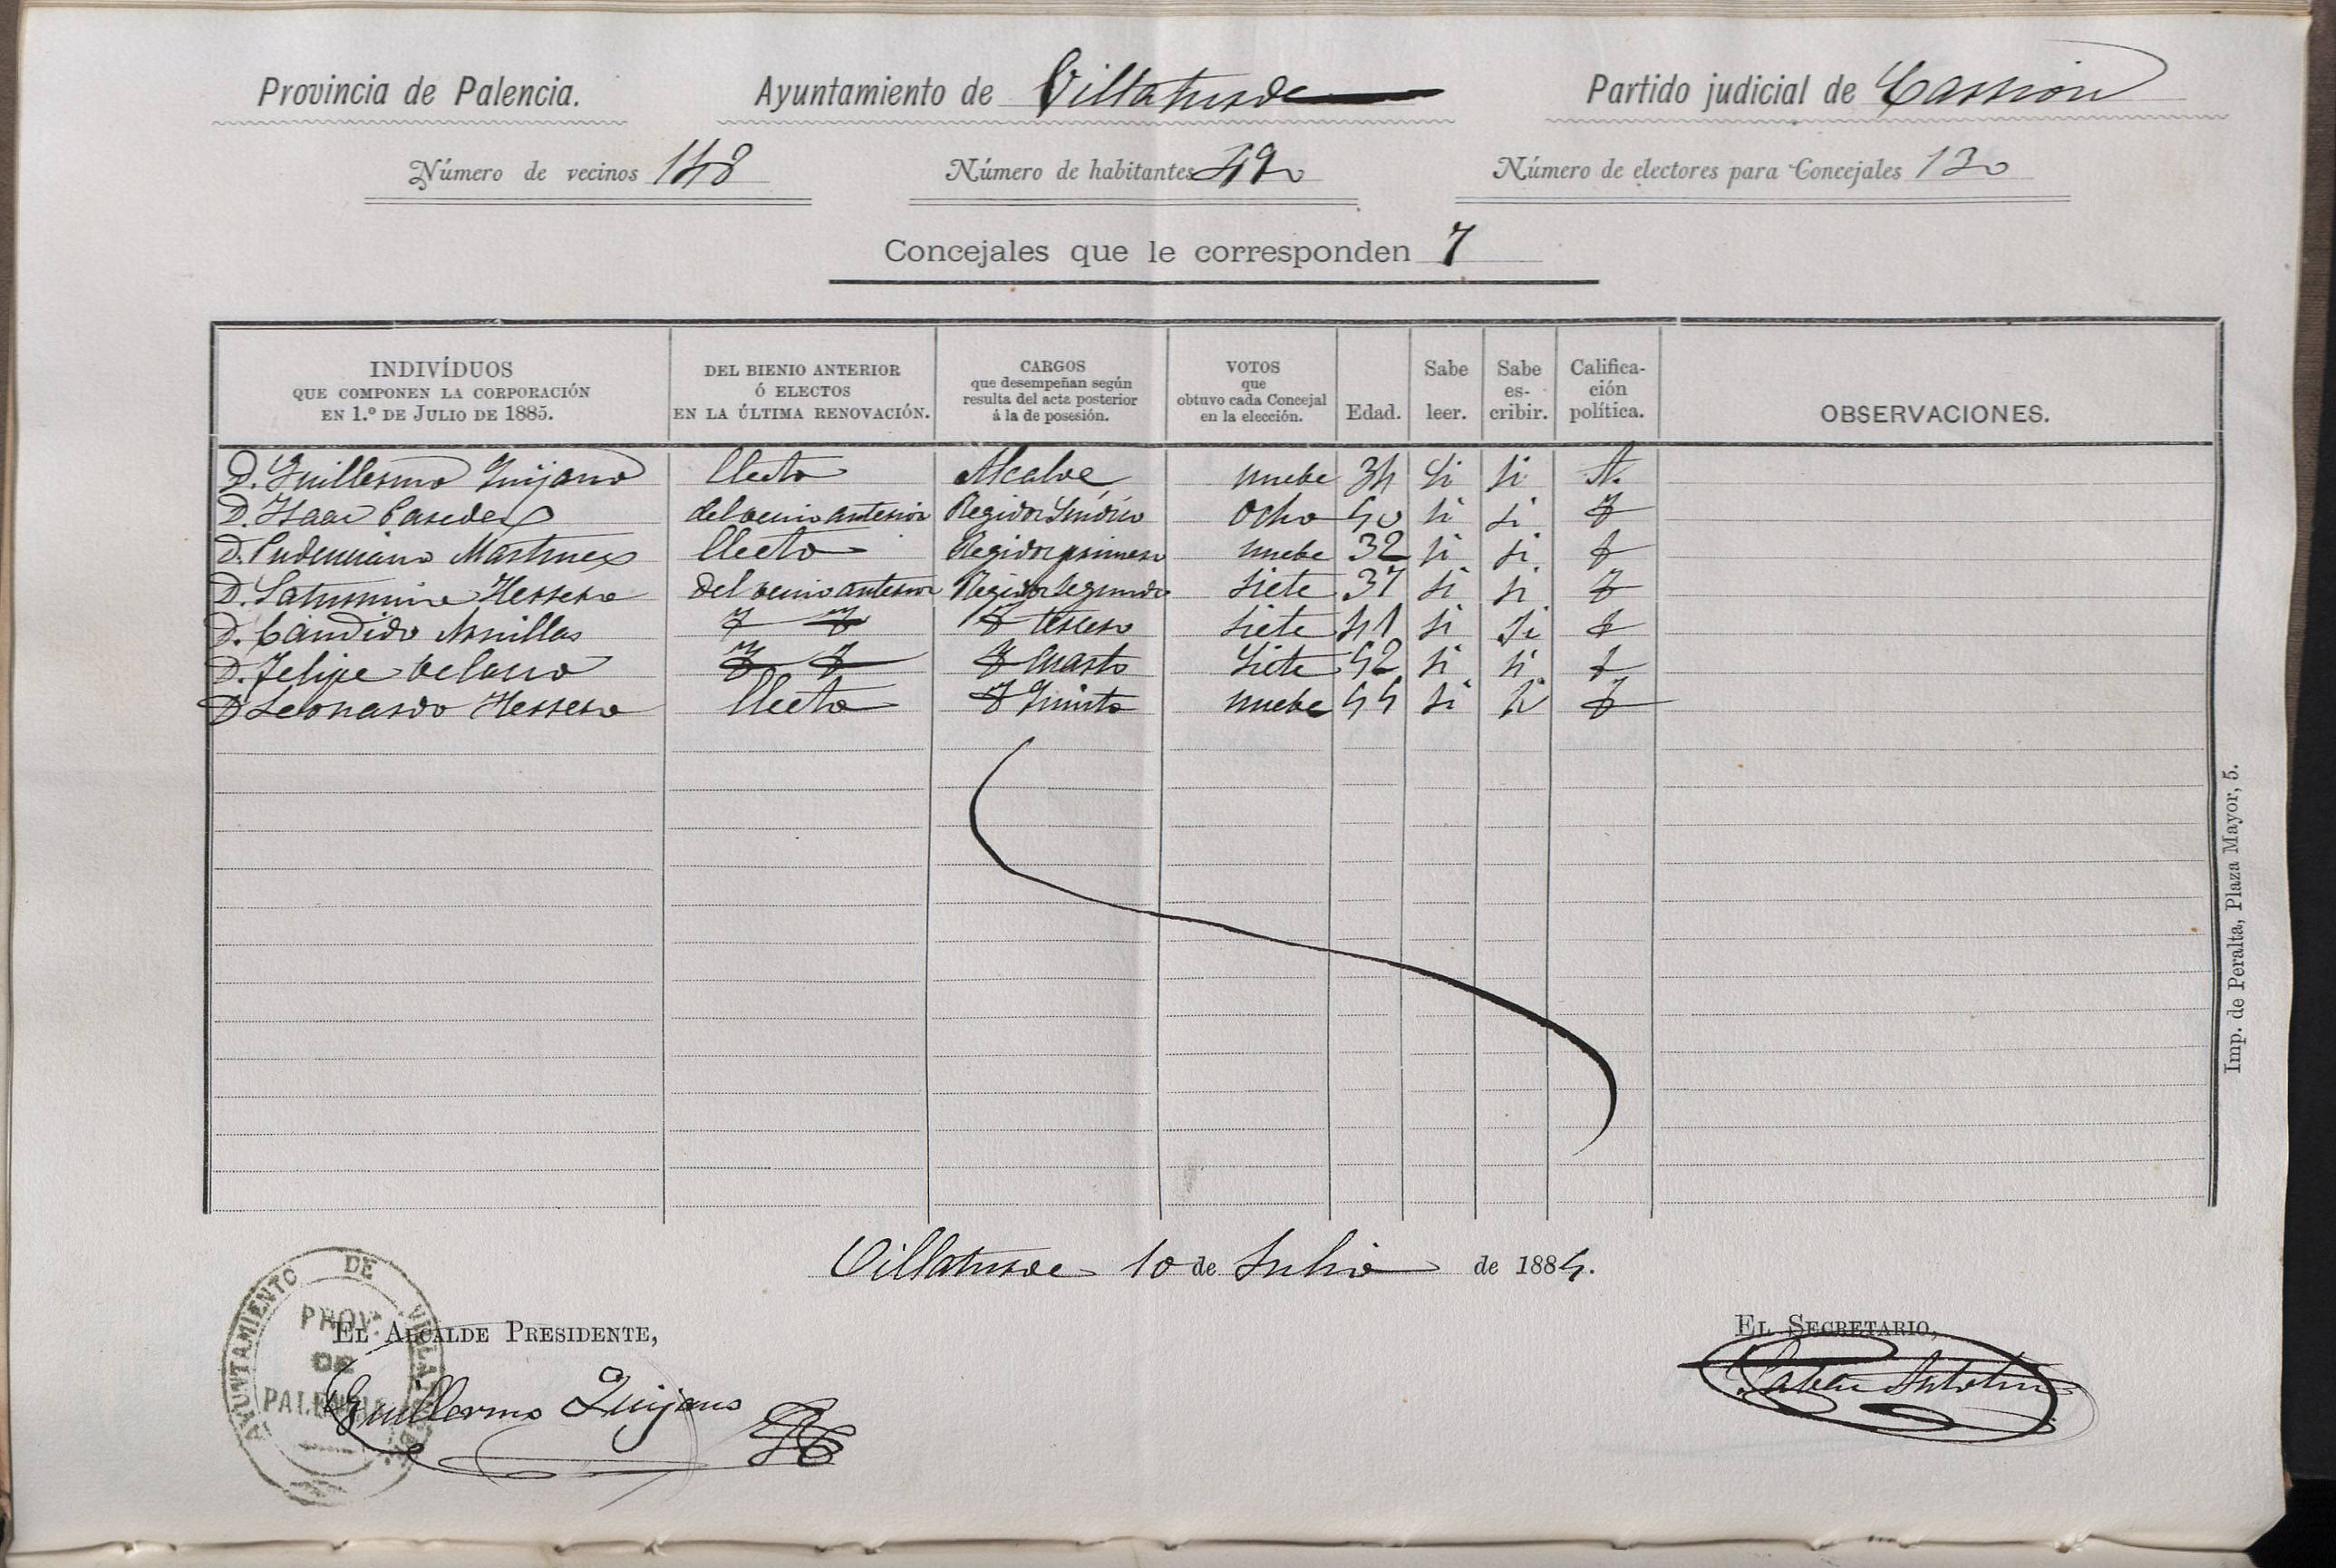 Provincia de Palencia. Ayuntamiento de Villaturde Partido judicial de Carrion
Número de vecinos 148 Número de habitantes Número de electores para Concejales 130
Concejales que le corresponden 7
INDIVÍDUOS QUE COMPONEN LA CORPORACIÓN EN 1.º DE JULIO DE 1885. DEL BIENIO ANTERIOR Ó ELECTOS EN LA ÚLTIMA RENOVACIÓN. CARGOS que desempeñan según resulta del acta posterior á la de posesión. VOTOS que obtuvo cada Concejal en la elección. Edad. Sabe leer. Sabe es-cribir. Califica-ción política. OBSERVACIONES.
D. Guillermo Quijano Electo Alcalde nuebe 34 Si Si A.
D. Isaac Paredes del venio anterior Regidor Sindico Ocho 50 Si Si
D. Pudenciano Martinez Electo Regidor primero nuebe 32 Si Si
D. Saturnino Herrera del venio anterior Regidor Segundo Siete 37 Si Si
D. Cándido Arnillas tercero Siete 41 Si Si
D. Felipe Velasco Cuarto Siete 52 Si Si
D. Leonardo Herrera Electo Quinto nuebe 55 Si Si
Imp. de Peralta, Plaza Mayor, 5.
Villaturde 10 de Julio de 1885.
EL ALCALDE PRESIDENTE,
Guillermo Quijano
AYUNTAMIENTO DE
PROV.ª
DE
PALENCIA
EL SECRETARIO,
Antolin